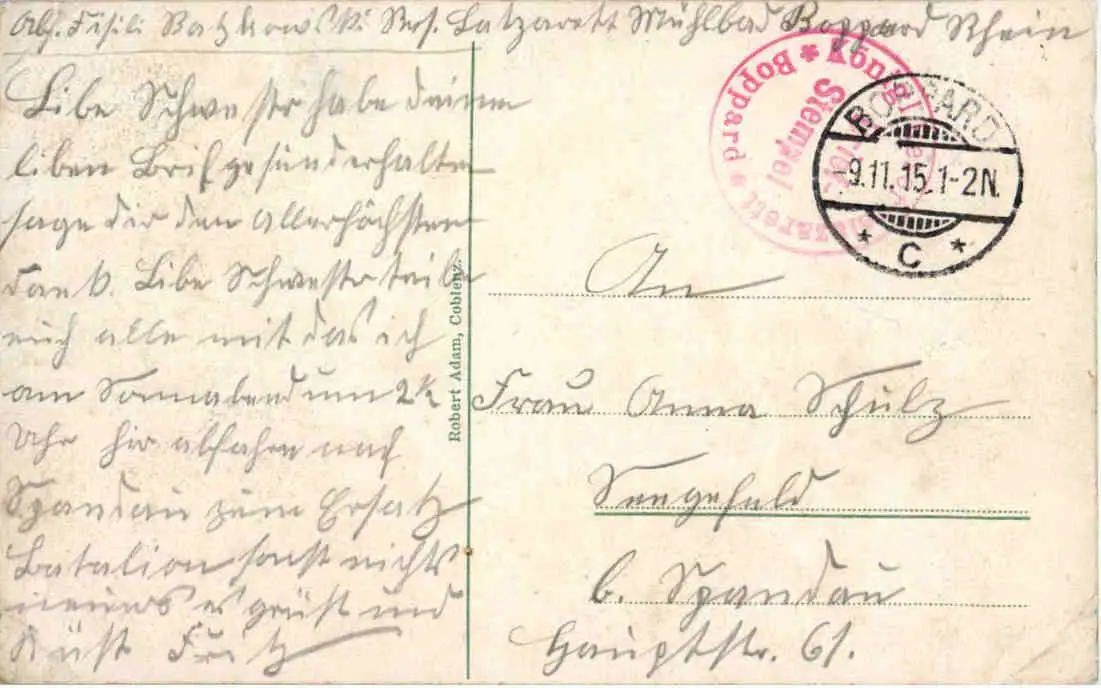 Abs. Füsili. Batzkowski Res. Latzarett Mühlbad Boppard Rhein
Libe Schwestr habe deinen
liben Brif gesund erhalten
sage dir den Allerhöchsten
Dank. Libe Schwestr teile
euch alle mit das ich
am Sonnabend um 2½
Uhr hir abfahre nach
Spandau zum Ersatz
Batalion sonst nichts
neues es grüst und
Küst Fritz
Robert Adam, Coblenz.
Königl.
Stempel
Lazarett * Boppard *
BOPPARD
-9.11.15.1-2N.
* C *
An
Frau Anna Schulz
Seegefeld
b. Spandau
Hauptstr. 61.